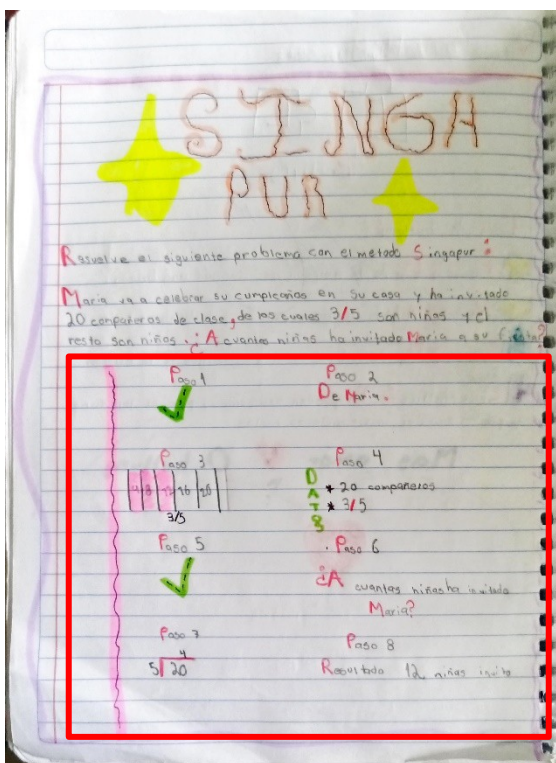 SINGA
PUR
Resuelve el siguiente problema con el metodo Singapur:
Maria va a celebrar su cumpleaños en su casa y ha invitado
20 conpañeros de clase, de los cuales 3/5 son niñas y el
resto son niños. ¿A cuantas niñas ha invitado Maria a su fiesta?
Paso 1
Paso 2
De Maria.
Paso 3
4 8 12 16 20
3/5
Paso 4
DATOS
* 20 compañeros
* 3/5
Paso 5
Paso 6
¿A cuantas niñas ha invitado
Maria?
Paso 7
4
5 20
Paso 8
Resultado 12 niñas invito